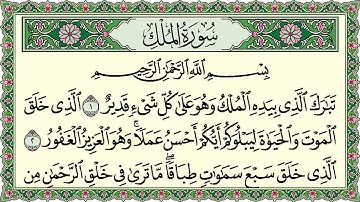 سُورَةُ المُلْكِ
بِسْمِ اللَّهِ الرَّحْمَٰنِ الرَّحِيمِ
تَبَٰرَكَ ٱلَّذِى بِيَدِهِ ٱلْمُلْكُ وَهُوَ عَلَىٰ كُلِّ شَىْءٍ قَدِيرٌ ١ ٱلَّذِى خَلَقَ
ٱلْمَوْتَ وَٱلْحَيَوٰةَ لِيَبْلُوَكُمْ أَيُّكُمْ أَحْسَنُ عَمَلًا ۚ وَهُوَ ٱلْعَزِيزُ ٱلْغَفُورُ ٢
ٱلَّذِى خَلَقَ سَبْعَ سَمَٰوَٰتٍ طِبَاقًا ۖ مَّا تَرَىٰ فِى خَلْقِ ٱلرَّحْمَٰنِ مِن